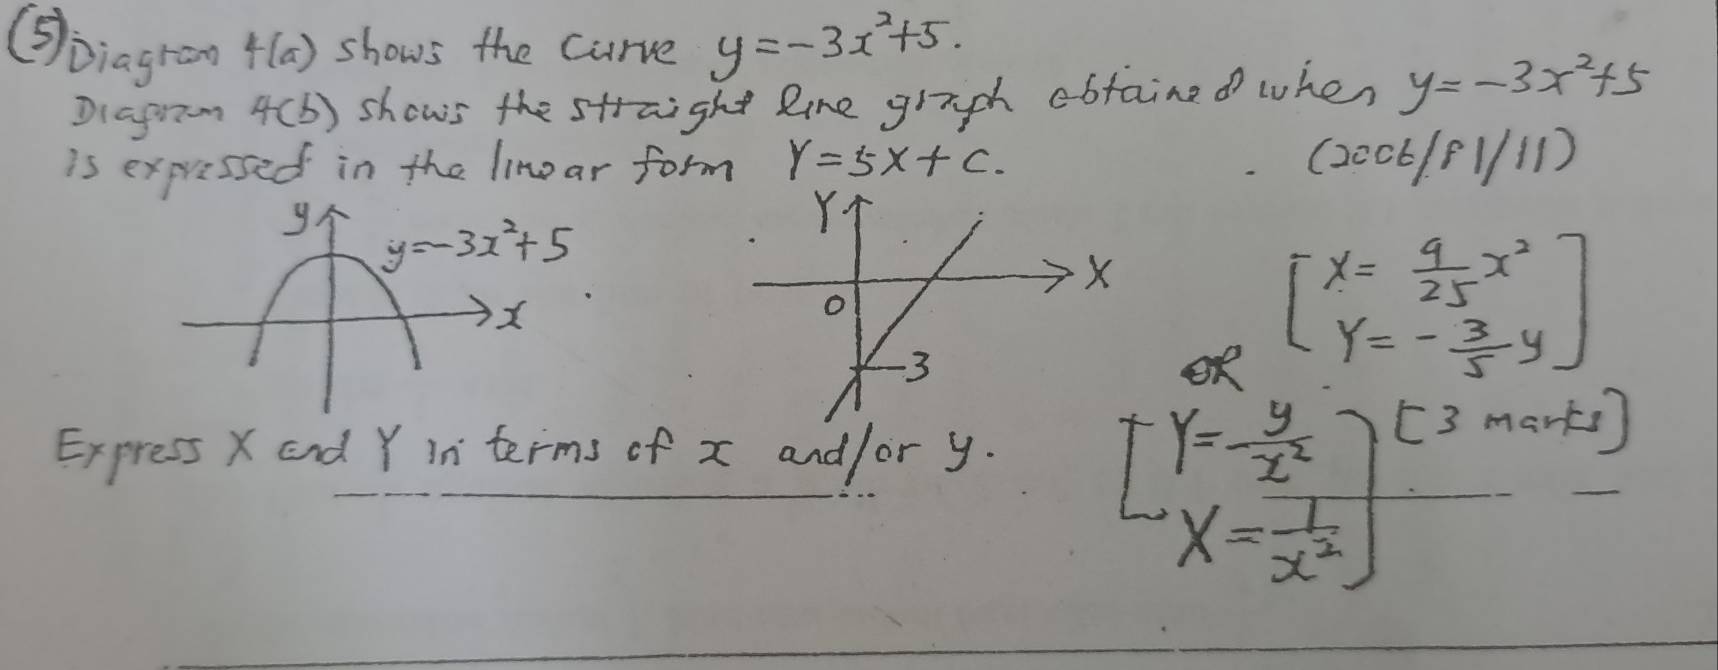 (5) Diagram 4(a) shows the curve y=-3x²+5.
Diagram 4(b) shows the straight line graph obtained when y=-3x²+5
is expressed in the linear form Y=5X+C.
(2006/P1/11)
y
y=-3x²+5
x
Y
X
O
-3
[X= 9/25 x²
Y= - 3/5 y]
OR
[Y= - y/x²
X= 1/x²]
[3 marks]
Express X and Y in terms of x and/or y.